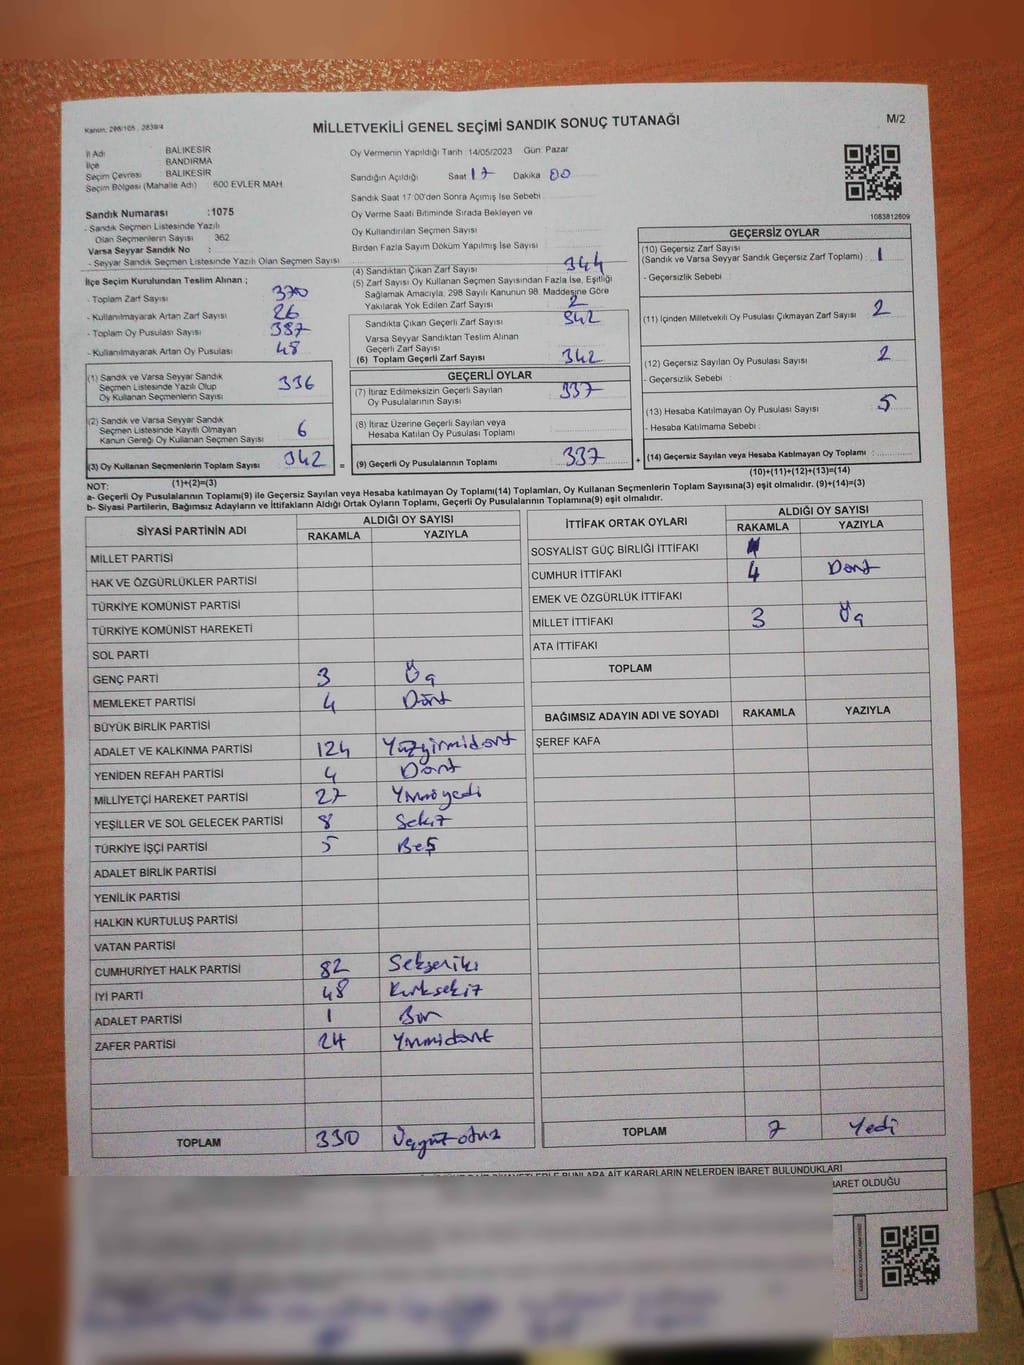 Kanun, 298/105 , 2839/4
MİLLETVEKİLİ GENEL SEÇİMİ SANDIK SONUÇ TUTANAĞI
M/2
İl Adı BALIKESİR
İlçe BANDIRMA
Seçim Çevresi BALIKESİR
Seçim Bölgesi (Mahalle Adı) 600 EVLER MAH.
Sandık Numarası :1075
- Sandık Seçmen Listesinde Yazılı
Olan Seçmenlerin Sayısı 362
Varsa Seyyar Sandık No :
- Seyyar Sandık Seçmen Listesinde Yazılı Olan Seçmen Sayısı
Oy Vermenin Yapıldığı Tarih :14/05/2023 Gün: Pazar
Sandığın Açıldığı Saat 17 Dakika 00
Sandık Saat 17:00'den Sonra Açımış İse Sebebi
Oy Verme Saati Bitiminde Sırada Bekleyen ve
Oy Kullandırılan Seçmen Sayısı
Birden Fazla Sayım Döküm Yapılmış İse Sayısı
1083812609
İlçe Seçim Kurulundan Teslim Alınan ;
- Toplam Zarf Sayısı 370
- Kullanılmayarak Artan Zarf Sayısı 26
- Toplam Oy Pusulası Sayısı 387
- Kullanılmayarak Artan Oy Pusulası 48
(1) Sandık ve Varsa Seyyar Sandık
Seçmen Listesinde Yazılı Olup
Oy Kullanan Seçmenlerin Sayısı 336
(2) Sandık ve Varsa Seyyar Sandık
Seçmen Listesinde Kayıtlı Olmayan
Kanun Gereği Oy Kullanan Seçmen Sayısı 6
(3) Oy Kullanan Seçmenlerin Toplam Sayısı 342 =
(1)+(2)=(3)
(4) Sandıktan Çıkan Zarf Sayısı 344
(5) Zarf Sayısı Oy Kullanan Seçmen Sayısından Fazla İse, Eşitliği
Sağlamak Amacıyla, 298 Sayılı Kanunun 98. Maddesine Göre
Yakılarak Yok Edilen Zarf Sayısı 2
Sandıkta Çıkan Geçerli Zarf Sayısı 342
Varsa Seyyar Sandıktan Teslim Alınan
Geçerli Zarf Sayısı
(6) Toplam Geçerli Zarf Sayısı 342
GEÇERLİ OYLAR
(7) İtiraz Edilmeksizin Geçerli Sayılan
Oy Pusulalarının Sayısı 337
(8) İtiraz Üzerine Geçerli Sayılan veya
Hesaba Katılan Oy Pusulası Toplamı
(9) Geçerli Oy Pusulalarının Toplamı 337 +
GEÇERSİZ OYLAR
(10) Geçersiz Zarf Sayısı
(Sandık ve Varsa Seyyar Sandık Geçersiz Zarf Toplamı) 1
- Geçersizlik Sebebi
(11) İçinden Milletvekili Oy Pusulası Çıkmayan Zarf Sayısı 2
(12) Geçersiz Sayılan Oy Pusulası Sayısı 2
- Geçersizlik Sebebi
(13) Hesaba Katılmayan Oy Pusulası Sayısı 5
- Hesaba Katılmama Sebebi :
(14) Geçersiz Sayılan veya Hesaba Katılmayan Oy Toplamı :
(10)+(11)+(12)+(13)=(14)
NOT:
a- Geçerli Oy Pusulalarının Toplamı(9) ile Geçersiz Sayılan veya Hesaba katılmayan Oy Toplamı(14) Toplamları, Oy Kullanan Seçmenlerin Toplam Sayısına(3) eşit olmalıdır. (9)+(14)=(3)
b- Siyasi Partilerin, Bağımsız Adayların ve İttifakların Aldığı Ortak Oyların Toplamı, Geçerli Oy Pusulalarının Toplamına(9) eşit olmalıdır.
SİYASİ PARTİNİN ADI ALDIĞI OY SAYISI
RAKAMLA YAZIYLA
MİLLET PARTİSİ
HAK VE ÖZGÜRLÜKLER PARTİSİ
TÜRKİYE KOMÜNİST PARTİSİ
TÜRKİYE KOMÜNİST HAREKETİ
SOL PARTİ
GENÇ PARTİ 3 Üç
MEMLEKET PARTİSİ 4 Dört
BÜYÜK BİRLİK PARTİSİ
ADALET VE KALKINMA PARTİSİ 124 Yüzyirmidört
YENİDEN REFAH PARTİSİ 4 Dört
MİLLİYETÇİ HAREKET PARTİSİ 27 Yirmiyedi
YEŞİLLER VE SOL GELECEK PARTİSİ 8 Sekiz
TÜRKİYE İŞÇİ PARTİSİ 5 Beş
ADALET BİRLİK PARTİSİ
YENİLİK PARTİSİ
HALKIN KURTULUŞ PARTİSİ
VATAN PARTİSİ
CUMHURİYET HALK PARTİSİ 82 Sekseniki
İYİ PARTİ 48 Kırksekiz
ADALET PARTİSİ 1 Bir
ZAFER PARTİSİ 24 Yirmidört
TOPLAM 330 Üçyüzotuz
İTTİFAK ORTAK OYLARI ALDIĞI OY SAYISI
RAKAMLA YAZIYLA
SOSYALİST GÜÇ BİRLİĞİ İTTİFAKI
CUMHUR İTTİFAKI 4 Dört
EMEK VE ÖZGÜRLÜK İTTİFAKI
MİLLET İTTİFAKI 3 Üç
ATA İTTİFAKI
TOPLAM
BAĞIMSIZ ADAYIN ADI VE SOYADI RAKAMLA YAZIYLA
ŞEREF KAFA
TOPLAM 7 Yedi
BUNLARA AİT KARARLARIN NELERDEN İBARET BULUNDUKLARI
BARET OLDUĞU